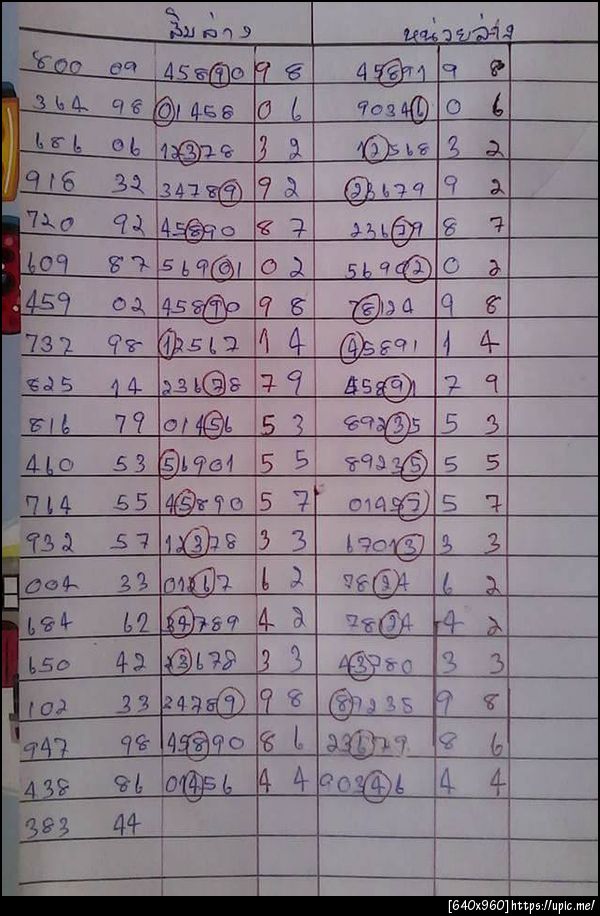 สิบล่าง หน่วยล่าง
800 09 45890 9 8 45891 9 8
364 98 01458 0 6 90346 0 6
686 06 12378 3 2 12568 3 2
916 32 34789 9 2 23679 9 2
720 92 45890 8 7 23679 8 7
609 87 56901 0 2 56902 0 2
459 02 45890 9 8 78124 9 8
737 98 12567 1 4 45891 1 4
825 14 23678 7 9 45891 7 9
816 79 01456 5 3 89235 5 3
460 53 56901 5 5 89235 5 5
714 55 45890 5 7 01457 5 7
932 57 12378 3 3 67013 3 3
004 33 01267 6 2 7824 6 2
684 62 34789 4 2 7824 4 2
650 42 23678 3 3 43780 3 3
102 33 34789 9 8 89235 9 8
947 98 45890 8 6 23679 8 6
438 86 01456 4 4 90346 4 4
383 44
[640x960]https://upic.me/